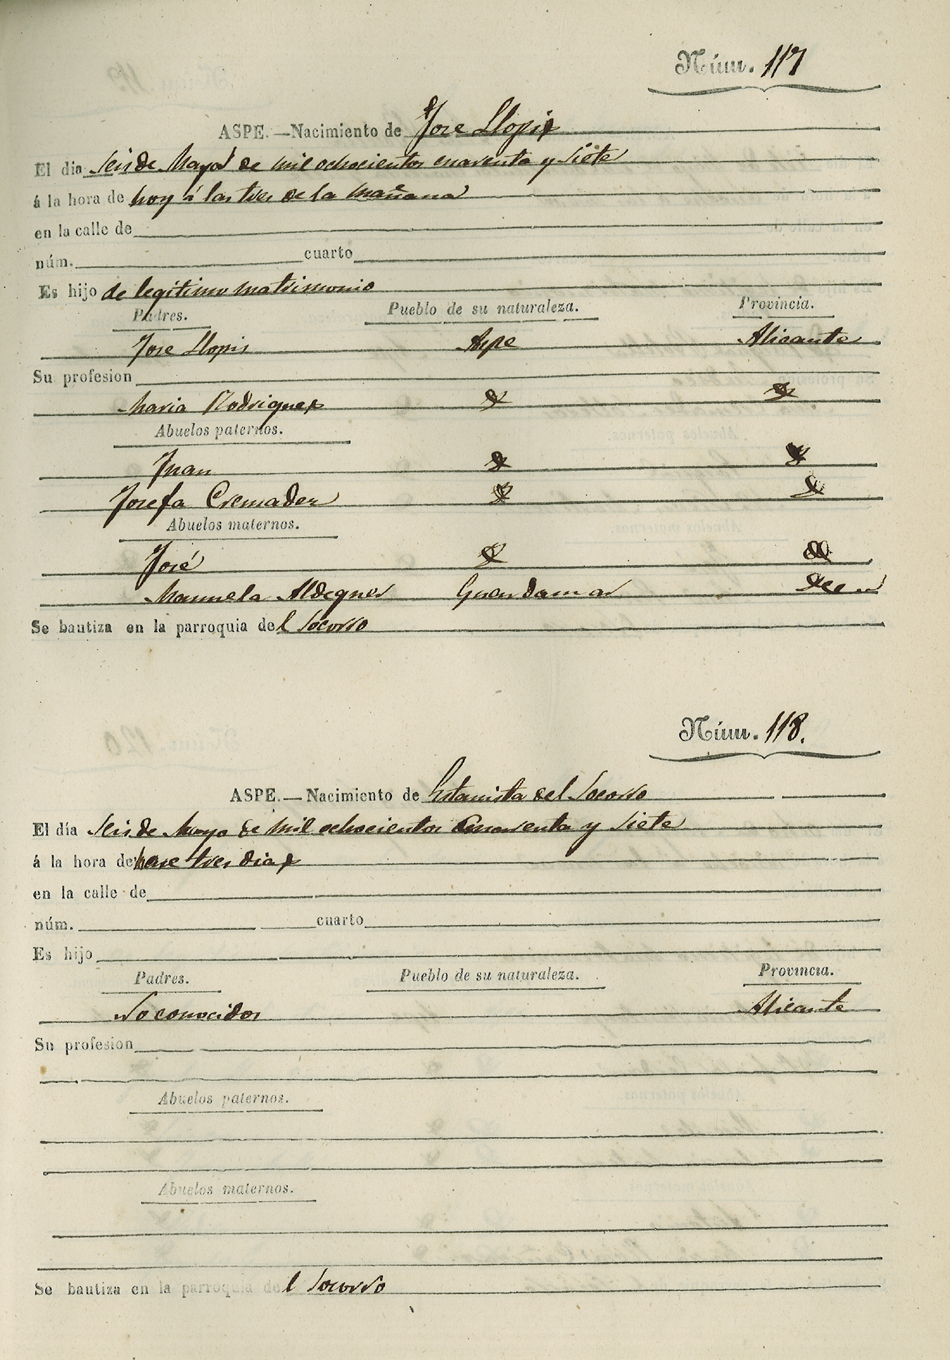 Núm. 117
ASPE.—Nacimiento de Jose Llopis
El dia seis de Mayo de mil ochocientos cuarenta y siete
á la hora de hoy á las tres de la mañana
en la calle de
núm. cuarto
Es hijo de legítimo matrimonio
Padres. Pueblo de su naturaleza. Provincia.
Jose Llopis Aspe Alicante
Su profesion
Maria Rodriguez
Abuelos paternos.
Juan
Josefa Cremades
Abuelos maternos.
José
Manuela Aldeguer Guardamar
Se bautiza en la parroquia del Socorro
Núm. 118.
ASPE.—Nacimiento de Estanista del Socorro
El día seis de Mayo de mil ochocientos cuarenta y siete
á la hora de hace tres dias
en la calle de
núm. cuarto
Es hijo
Padres. Pueblo de su naturaleza. Provincia.
No conocidos Alicante
Su profesion
Abuelos paternos.
Abuelos maternos.
Se bautiza en la parroquia del Socorro